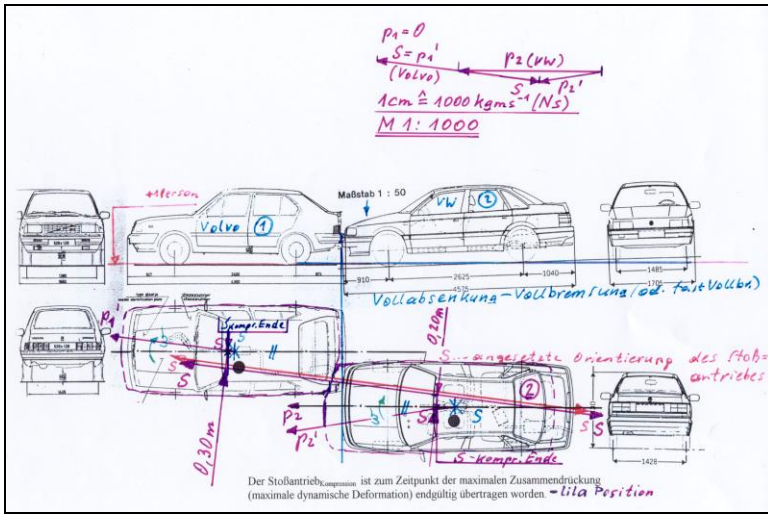 p₁=0
S=p₁'
(Volvo)
p₂(VW)
S
p₂'
1cm ≙ 1000 kgms⁻¹(Ns)
M 1:1000
+1Person
Maßstab 1 : 50
Volvo ①
VW ②
910
2625
1040
4575
1485
1705
Vollabsenkung-Vollbremsung (od. fast Vollbr.)
p₁'
S Kompr.Ende
0,20m
S...angesetzte Orientierung des Stoß=
antriebes
S
S
S
S
S
②
p₂
p₂'
S
S
S
0,30m
S-Kompr.Ende
1428
Der Stoßantrieb Kompression ist zum Zeitpunkt der maximalen Zusammendrückung
(maximale dynamische Deformation) endgültig übertragen worden. -lila Position